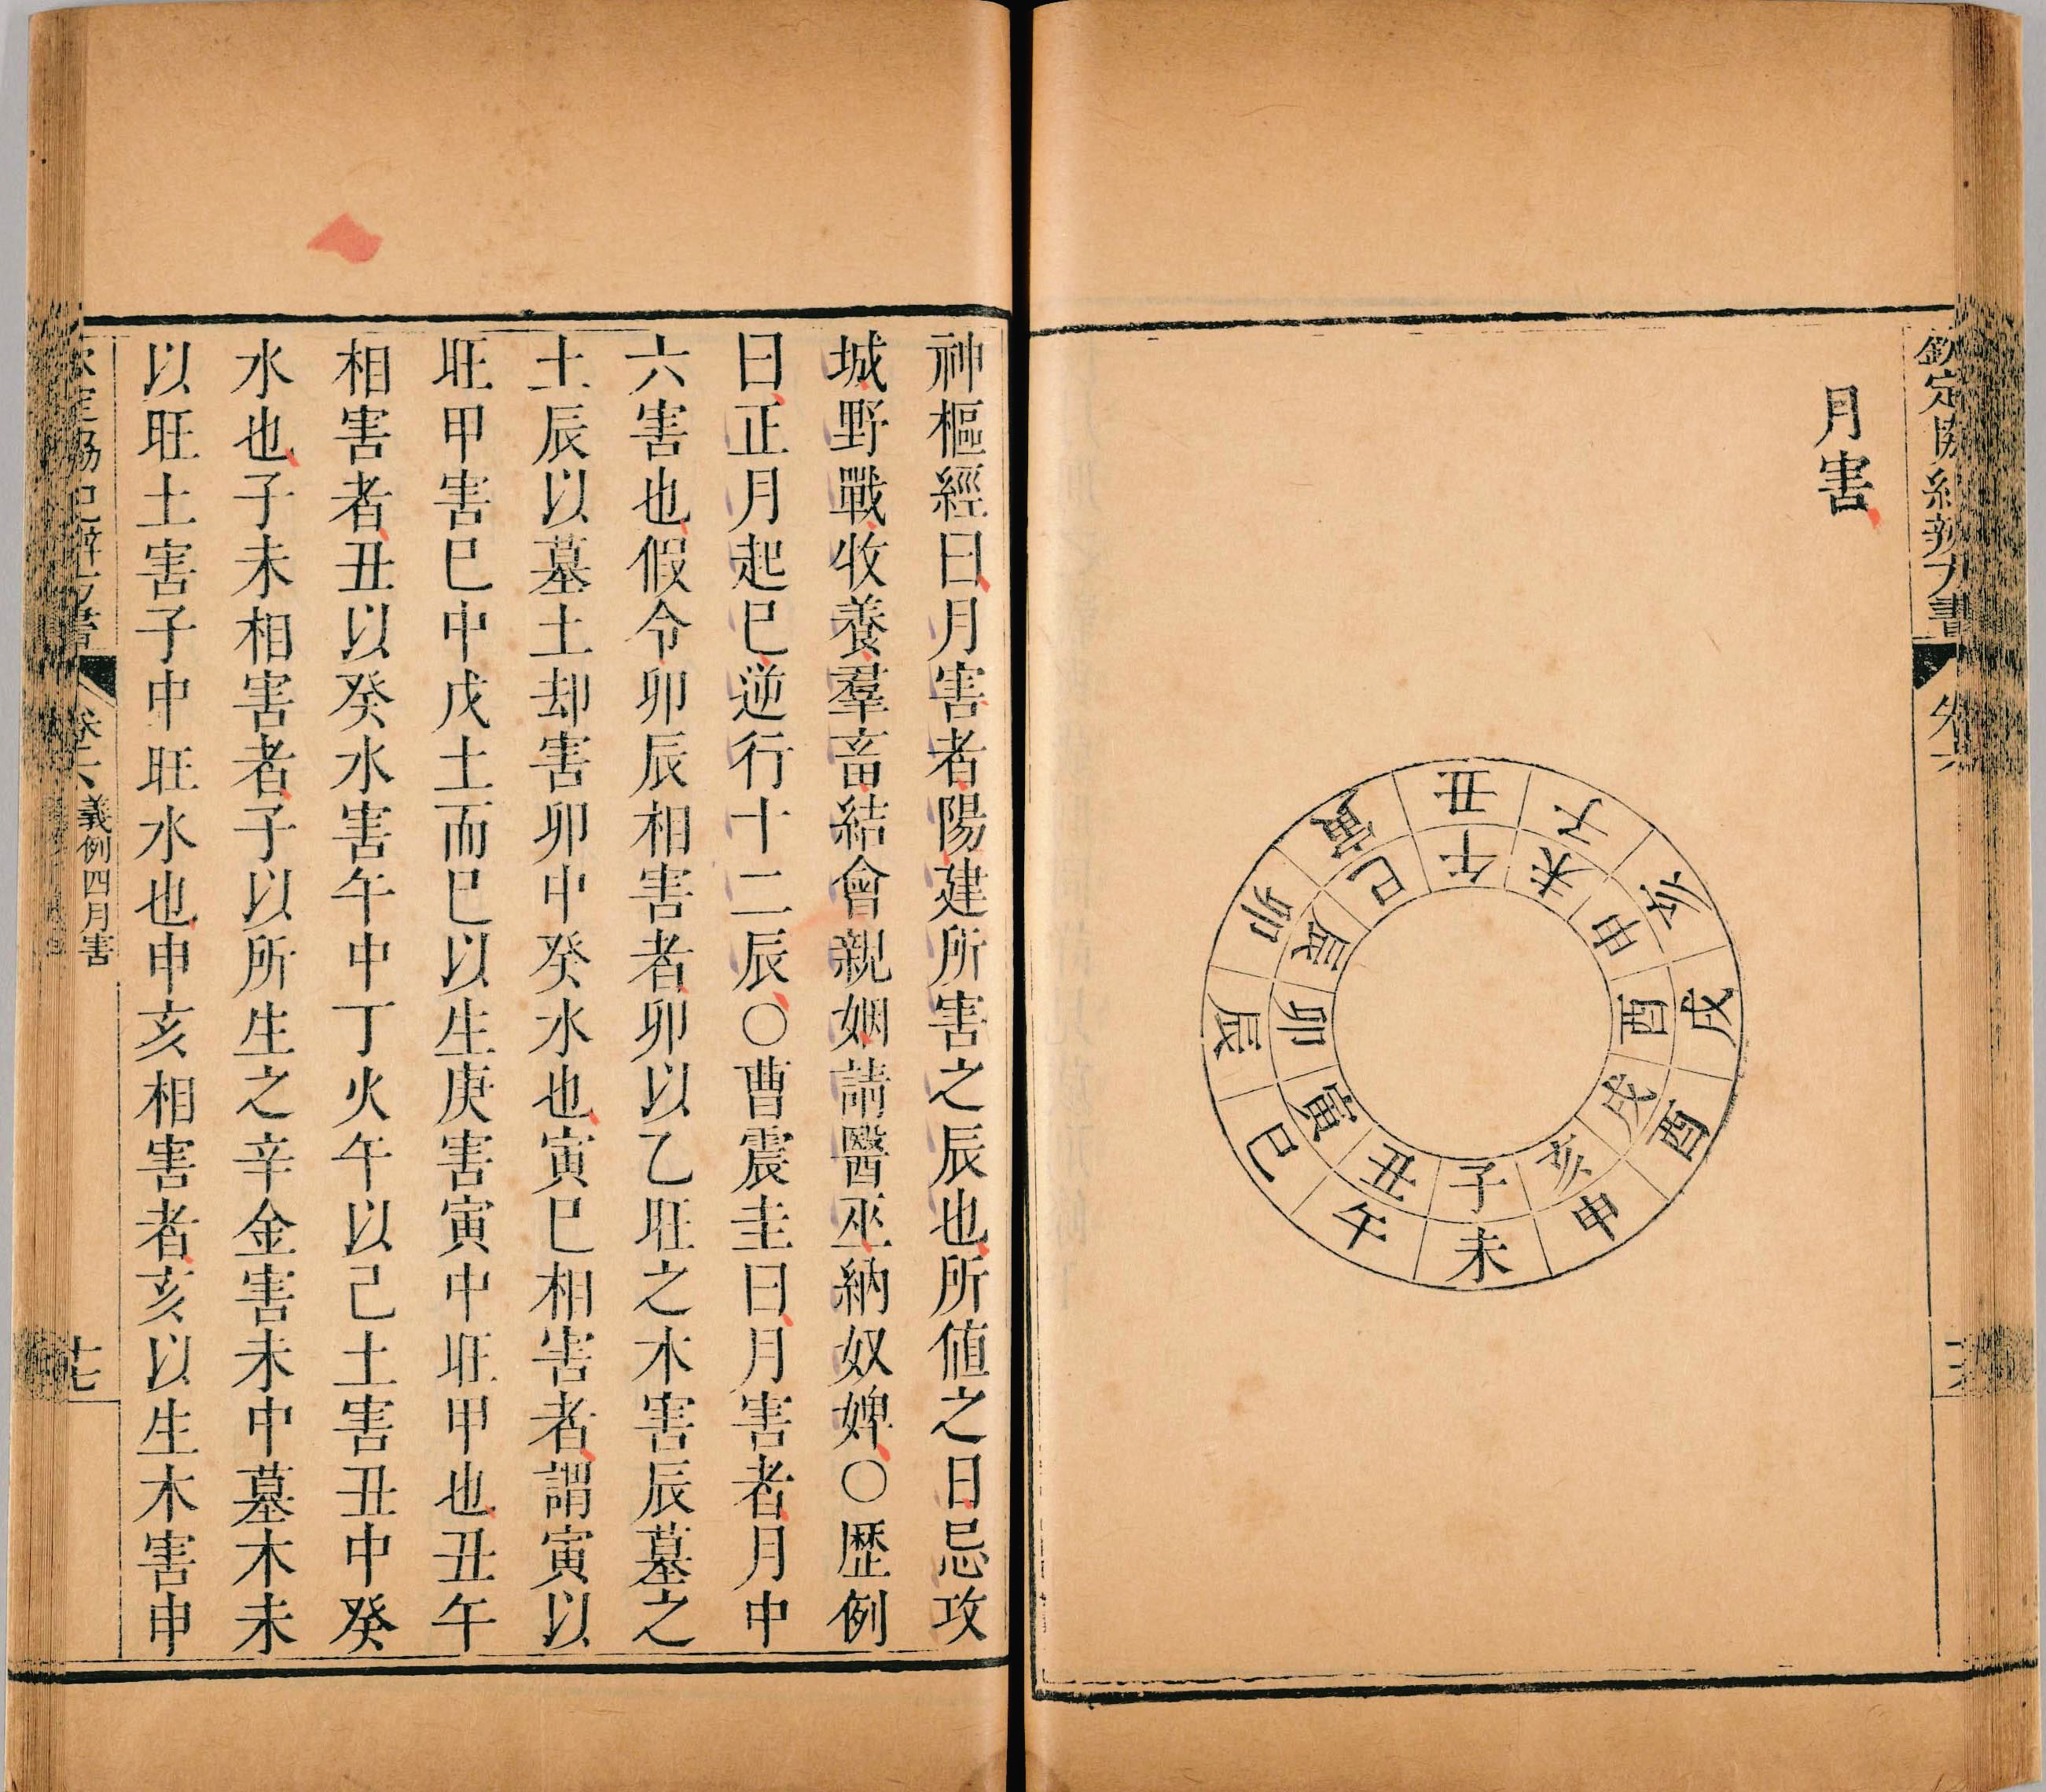 欽定協紀辨方書
卷六
月害
丑子亥戌酉申未午巳辰卯寅
午未申酉戌亥子丑寅卯辰巳
神樞經曰月害者陽建所害之辰也所値之日忌攻
城野戰收養羣畜結會親姻請醫巫納奴婢○歷例
曰正月起巳逆行十二辰○曹震圭曰月害者月中
六害也假令卯辰相害者卯以乙旺之木害辰墓之
土辰以墓土却害卯中癸水也寅巳相害者謂寅以
旺甲害巳中戊土而巳以生庚害寅中旺甲也丑午
相害者丑以癸水害午中丁火午以己土害丑中癸
水也子未相害者子以所生之辛金害未中墓木未
以旺土害子中旺水也申亥相害者亥以生木害申
欽定協紀辨方書
卷六 義例四月害
十七